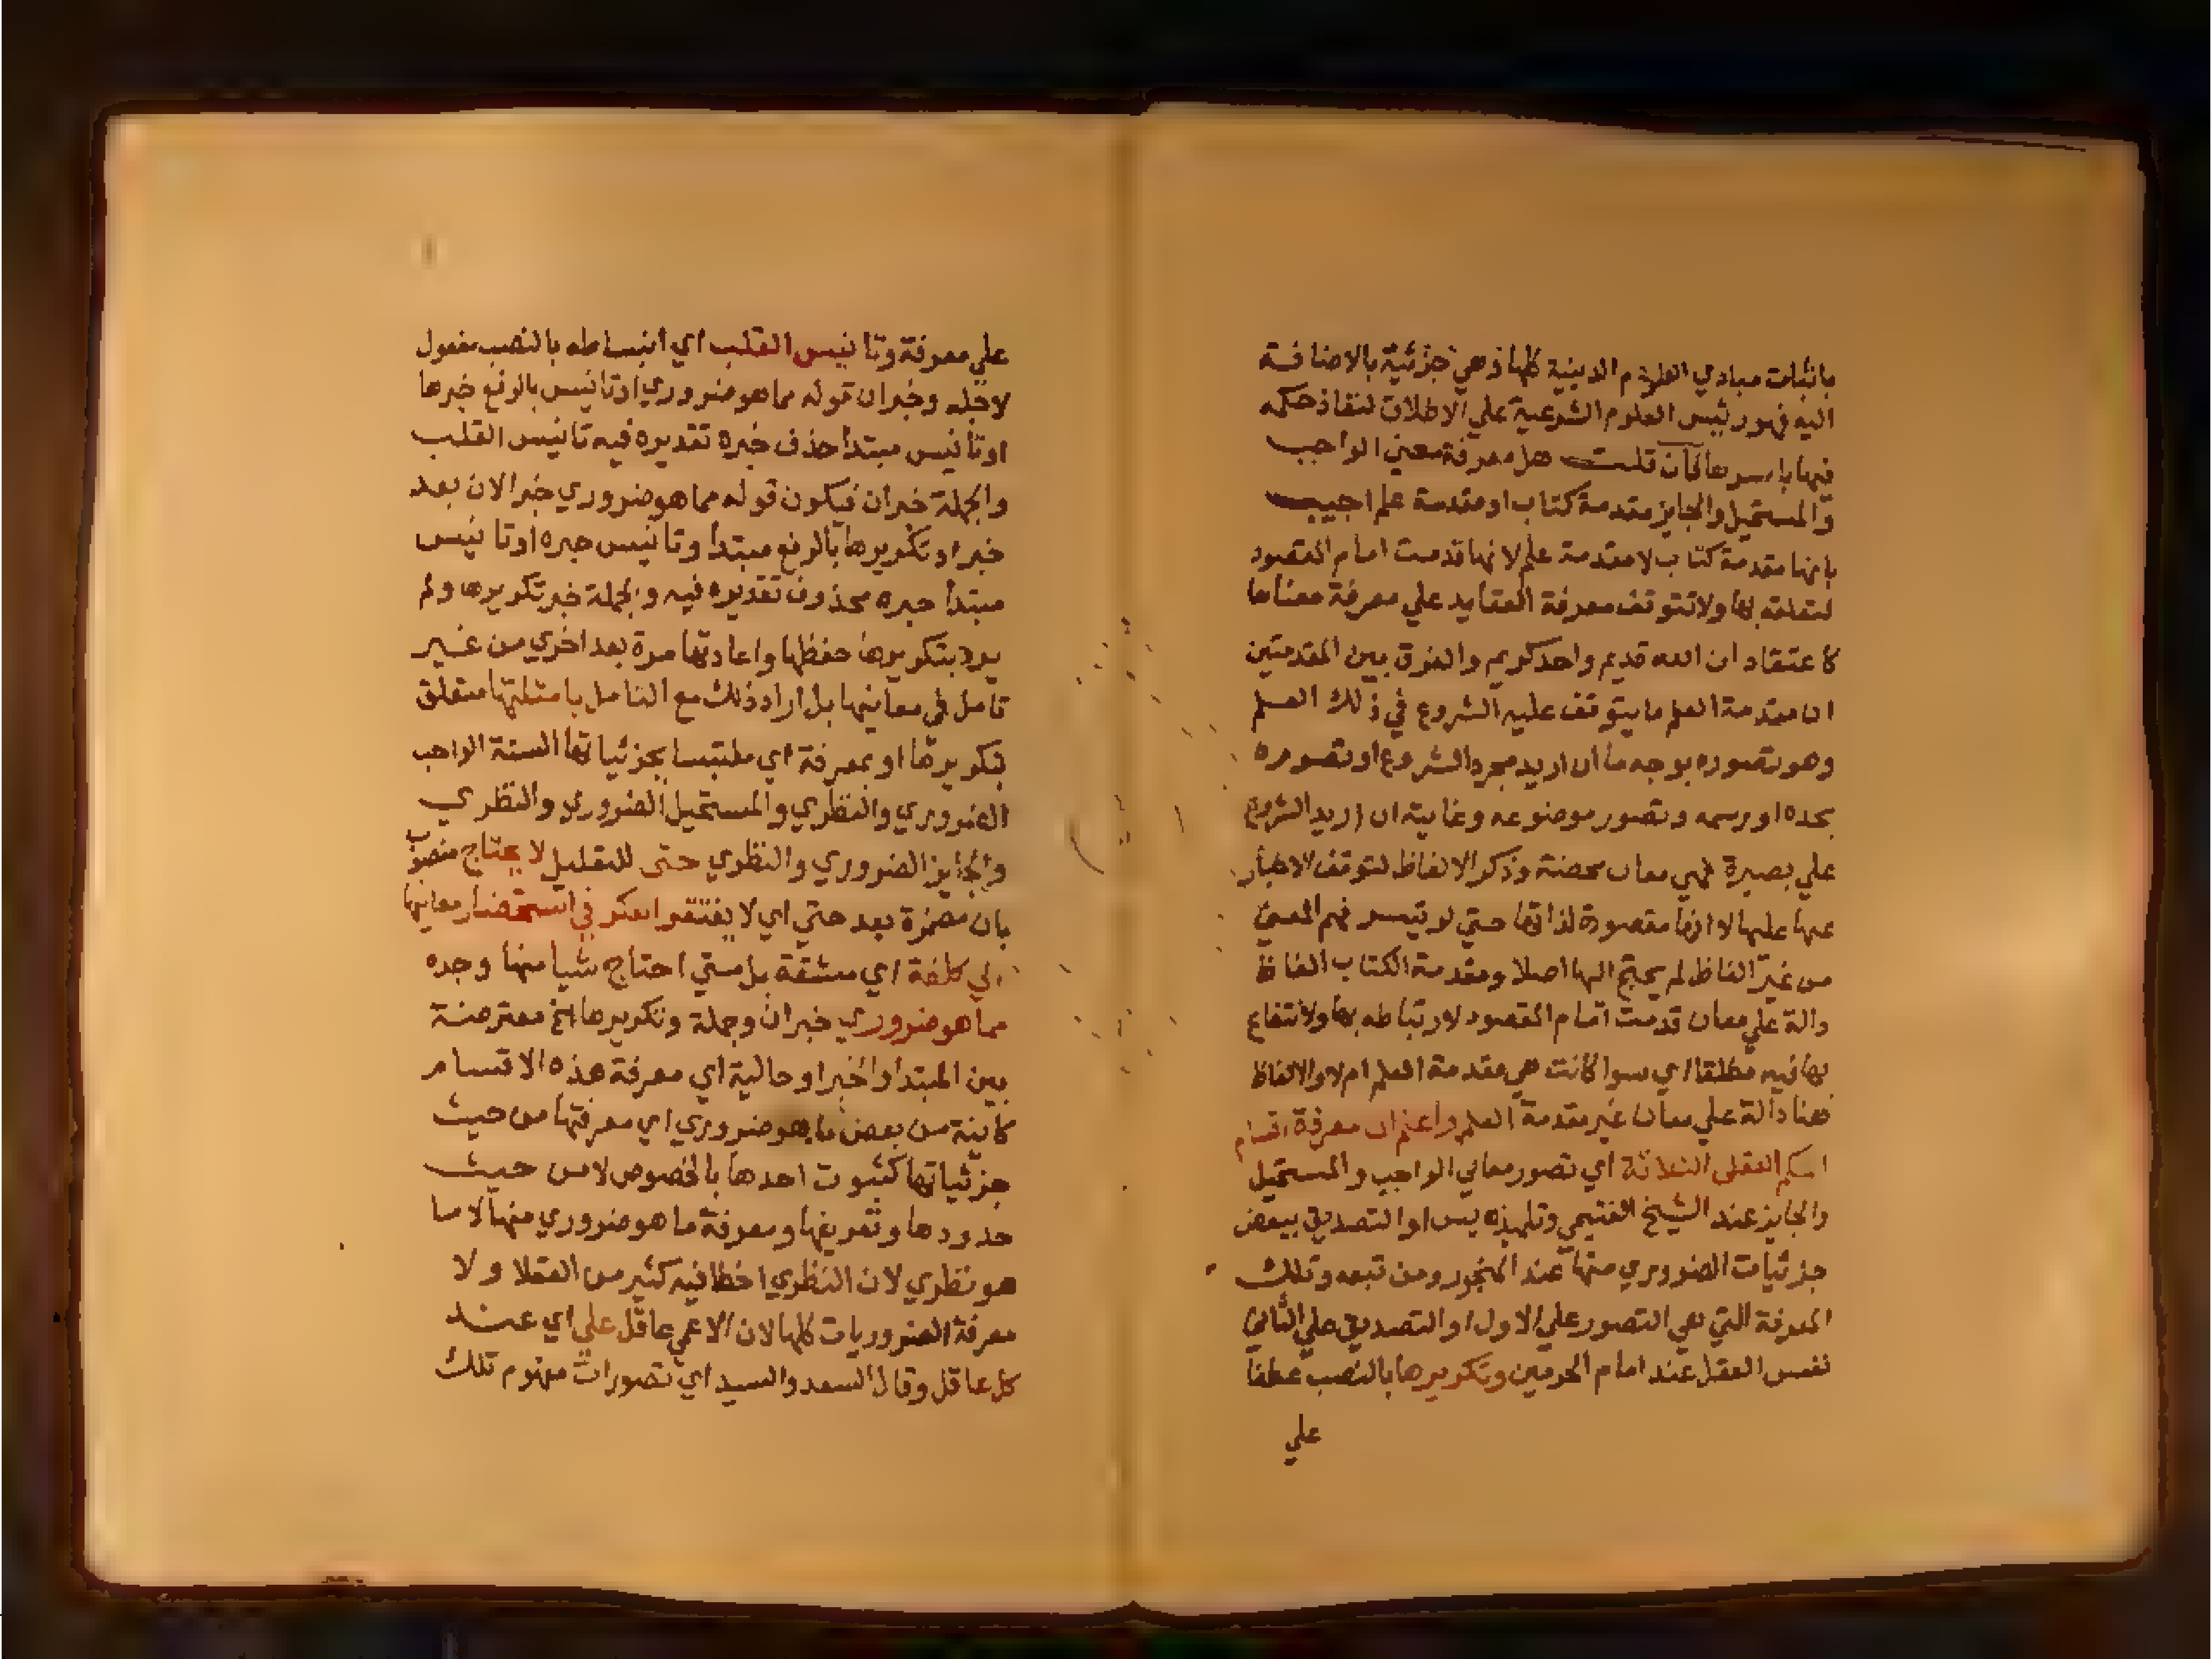 باثبات مبادي العلوم الدينية كلها وهي جزئية بالاضافة
اليه فهو رئيس العلوم الشرعية علي الاطلاق لنفاذ حكمه
فيها باسرها فان قلت هل معرفة معني الواجب
والمستحيل والجايز مقدمة كتاب او مقدمة علم اجيب
بانها مقدمة كتاب لا مقدمة علم لانها قدمت امام المقصود
لتعلقه بها ولا تتوقف معرفة العقايد علي معرفة معناها
كاعتقاد ان الله قديم واحد كريم والفرق بين المقدمتين
ان مقدمة العلم ما يتوقف عليه الشروع في ذلك العلم
وهو تصوره بوجه ما ان اريد مجرد الشروع او تصوره
بحده او رسمه وتصور موضوعه وغايته ان اريد الشروع
علي بصيرة فهي معان محضة وذكر الالفاظ لتوقف الاخبار
عنها عليها لا انها مقصودة لذاتها حتي لو تيسر فهم المعني
من غير الفاظ لم يحتج اليها اصلا ومقدمة الكتاب الفاظ
دالة علي معان قدمت امام المقصود لارتباطه بها ولانتفاع
بها فيه مطلقا اي سوا كانت هي مقدمة العلم ام لا والالفاظ
هنا دالة علي معان غير مقدمة العلم واعلم ان معرفة اقسام
الحكم العقلي الثلاثة اي تصور معاني الواجب والمستحيل
والجايز عند الشيخ الغنيمي وتلميذه يس او التصديق ببعض
جزئيات الضروري منها عند المنجور ومن تبعه وتلك
المعرفة التي هي التصور علي الاول او التصديق علي الثاني
نفس العقل عند امام الحرمين وتكريرها بالنصب عطفا
علي
علي معرفة وتانيس القلب اي انبساطه بالنصب مفعول
لاجله وخبر ان قوله مما هو ضروري او تانيس بالرفع خبرها
او تانيس مبتدا حذف خبره تقديره فيه تانيس القلب
والجملة خبر ان فيكون قوله مما هو ضروري خبر الان بعد
خبر او تكريرها بالرفع مبتدا وتانيس خبره او تانيس
مبتدا خبره محذوف تقديره فيه والجملة خبر تكريرها ولم
يرد بتكريرها حفظها واعادتها مرة بعد اخري من غير
تامل في معانيها بل اراد ذلك مع التامل بامثلتها متعلق
بتكريرها او بمعرفة اي ملتبسا بجزئياتها الستة الواجب
الضروري والنظري والمستحيل الضروري والنظري
والجايز الضروري والنظري حتى للتعليل لا يحتاج منصوب
بان مضمرة بعد حتي اي لا يفتقر الفكر في استحضار معانيها
الي كلفة اي مشقة بل متي احتاج شيا منها وجده
مما هو ضروري خبر ان وجملة وتكريرها الخ معترضة
بين المبتدا والخبر او حالية اي معرفة هذه الاقسام
كاينة من بعض ما هو ضروري اي معرفتها من حيث
جزئياتها كثبوت احدها بالخصوص لا من حيث
حدودها وتعريفها ومعرفة ما هو ضروري منها لا ما
هو نظري لان النظري اخطا فيه كثير من العقلا ولا
معرفة الضروريات كلها لان الاعمي عاقل علي اي عند
كل عاقل وقال السعد والسيد اي تصورات مفهوم تلك